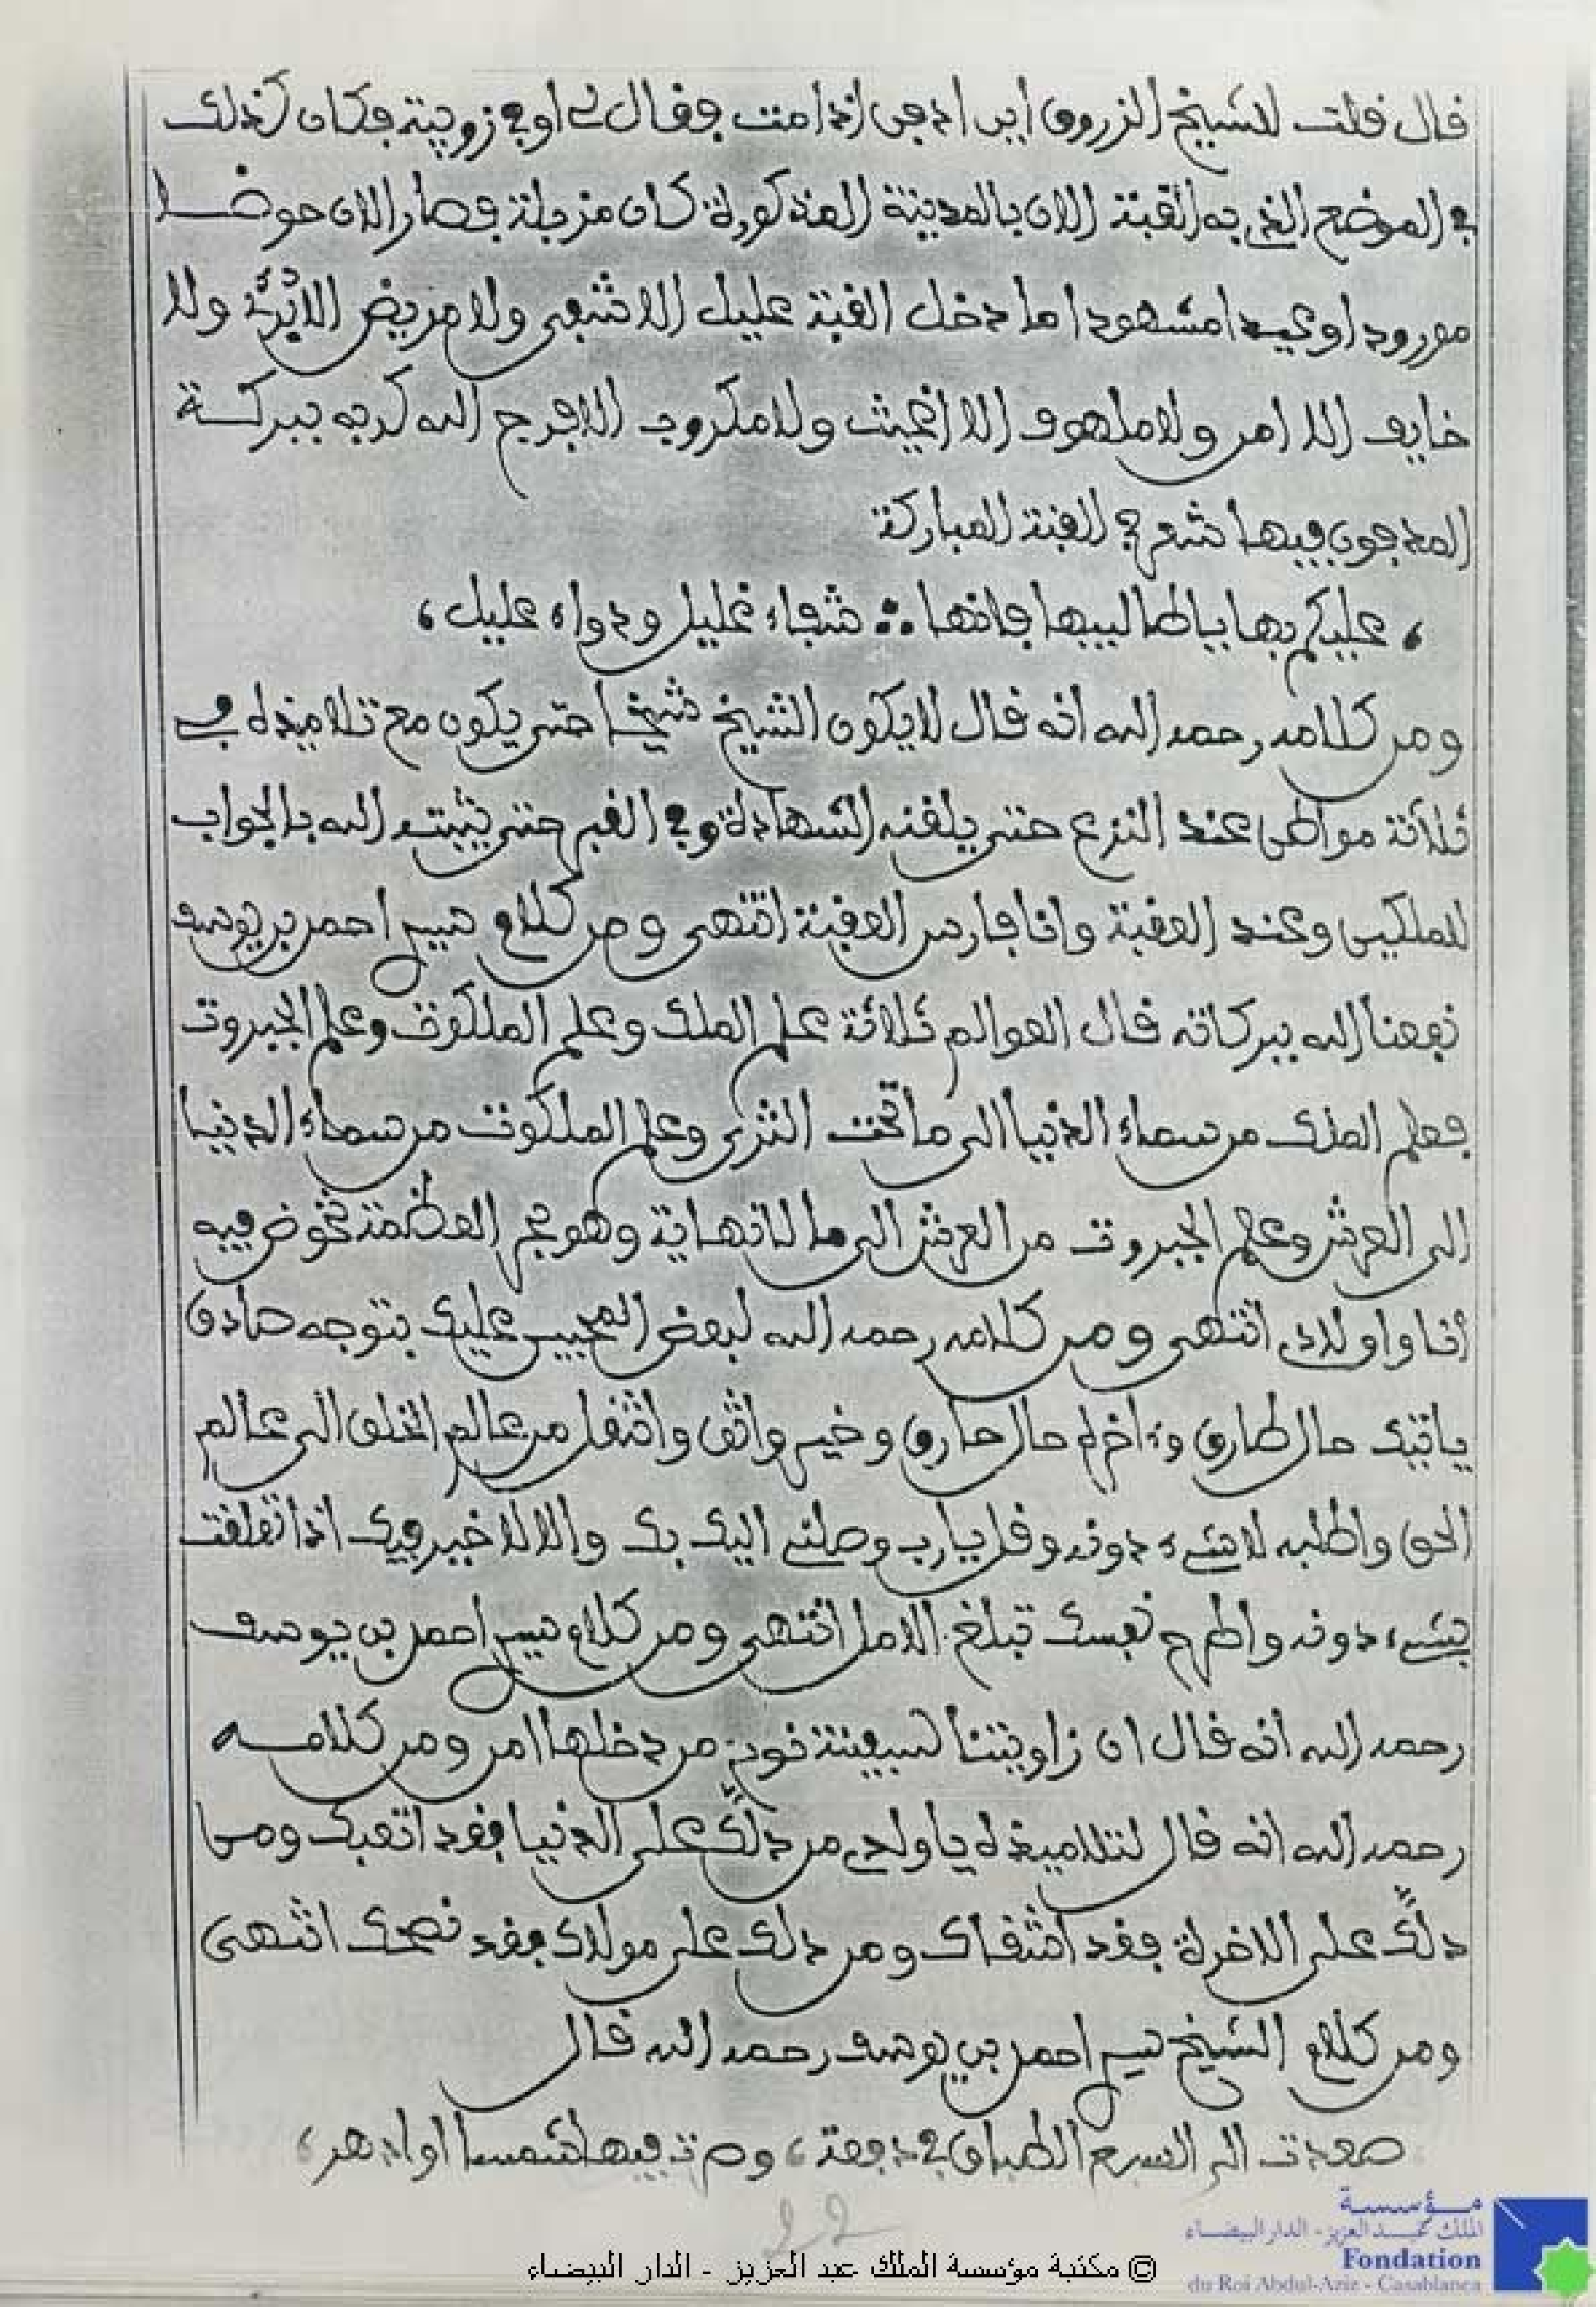 قال قلت للشيخ الزروق اين ادفن اذا مت فقال لي او في زويتة فكان كذلك
في الموضع الذي به القبة الان بالمدينة المذكورة كان مزبلة فصار الان حوضا
مورودا وعيدا مشهودا ما دخل القبة عليل الا شفي ولا مريض الا برئ ولا
خايف الا امن ولا ملهوف الا اغيث ولا مكروب الا فرج الله كربه ببركة
المدفون فيها شعر في القبة المباركة
، عليكم بها يا طالبيها فانها ∴ شفاء غليل ودواء عليل ،
ومن كلامه رحمه الله انه قال لا يكون الشيخ شيخا حتى يكون مع تلاميذه في
ثلاثة مواطن عند النزع حتى يلقنه الشهادة وفي القبر حتى يثبته الله بالجواب
للملكين وعند العقبة وانا فارس العقبة انتهى ومن كلام سيدي احمد بن يوسف
نفعنا الله ببركاته قال العوالم ثلاثة علم الملك وعلم الملكوت وعلم الجبروت
فعلم الملك من سماء الدنيا الى ما تحت الثرى وعلم الملكوت من سماء الدنيا
الى العرش وعلم الجبروت من العرش الى ما لا نهاية وهو بحر العظمة نخوض فيه
انا واولادي انتهى ومن كلامه رحمه الله لبعض المحبين عليك بتوجه صادق
ياتيك حال طارق وءاخر له حال حارق وخير واثق وانتقل من عالم الخلق الى عالم
الحق واطلبه لا شيء دونه وقل يا رب وصلني اليك بك والا لا خير فيك اذا تعلقت
بشيء دونه واطرح نفسك تبلغ الامل انتهى ومن كلام سيدي احمد بن يوسف
رحمه الله انه قال ان زاويتنا كسفينة نوح من دخلها امن ومن كلامه
رحمه الله انه قال لتلاميذه يا ولدي من دلك على الدنيا فقد اتعبك ومن
دلك على الاخرة فقد اشقاك ومن دلك على مولاك فقد نصحك انتهى
ومن كلام الشيخ سيدي احمد بن يوسف رحمه الله قال
صعدت الى السبع الطباق في دفعة ، وصرت فيها شمسا او ادهر ،
22
© مكتبة مؤسسة الملك عبد العزيز - الدار البيضاء
مؤسسة
الملك عبد العزيز - الدار البيضاء
Fondation
du Roi Abdul-Aziz - Casablanca